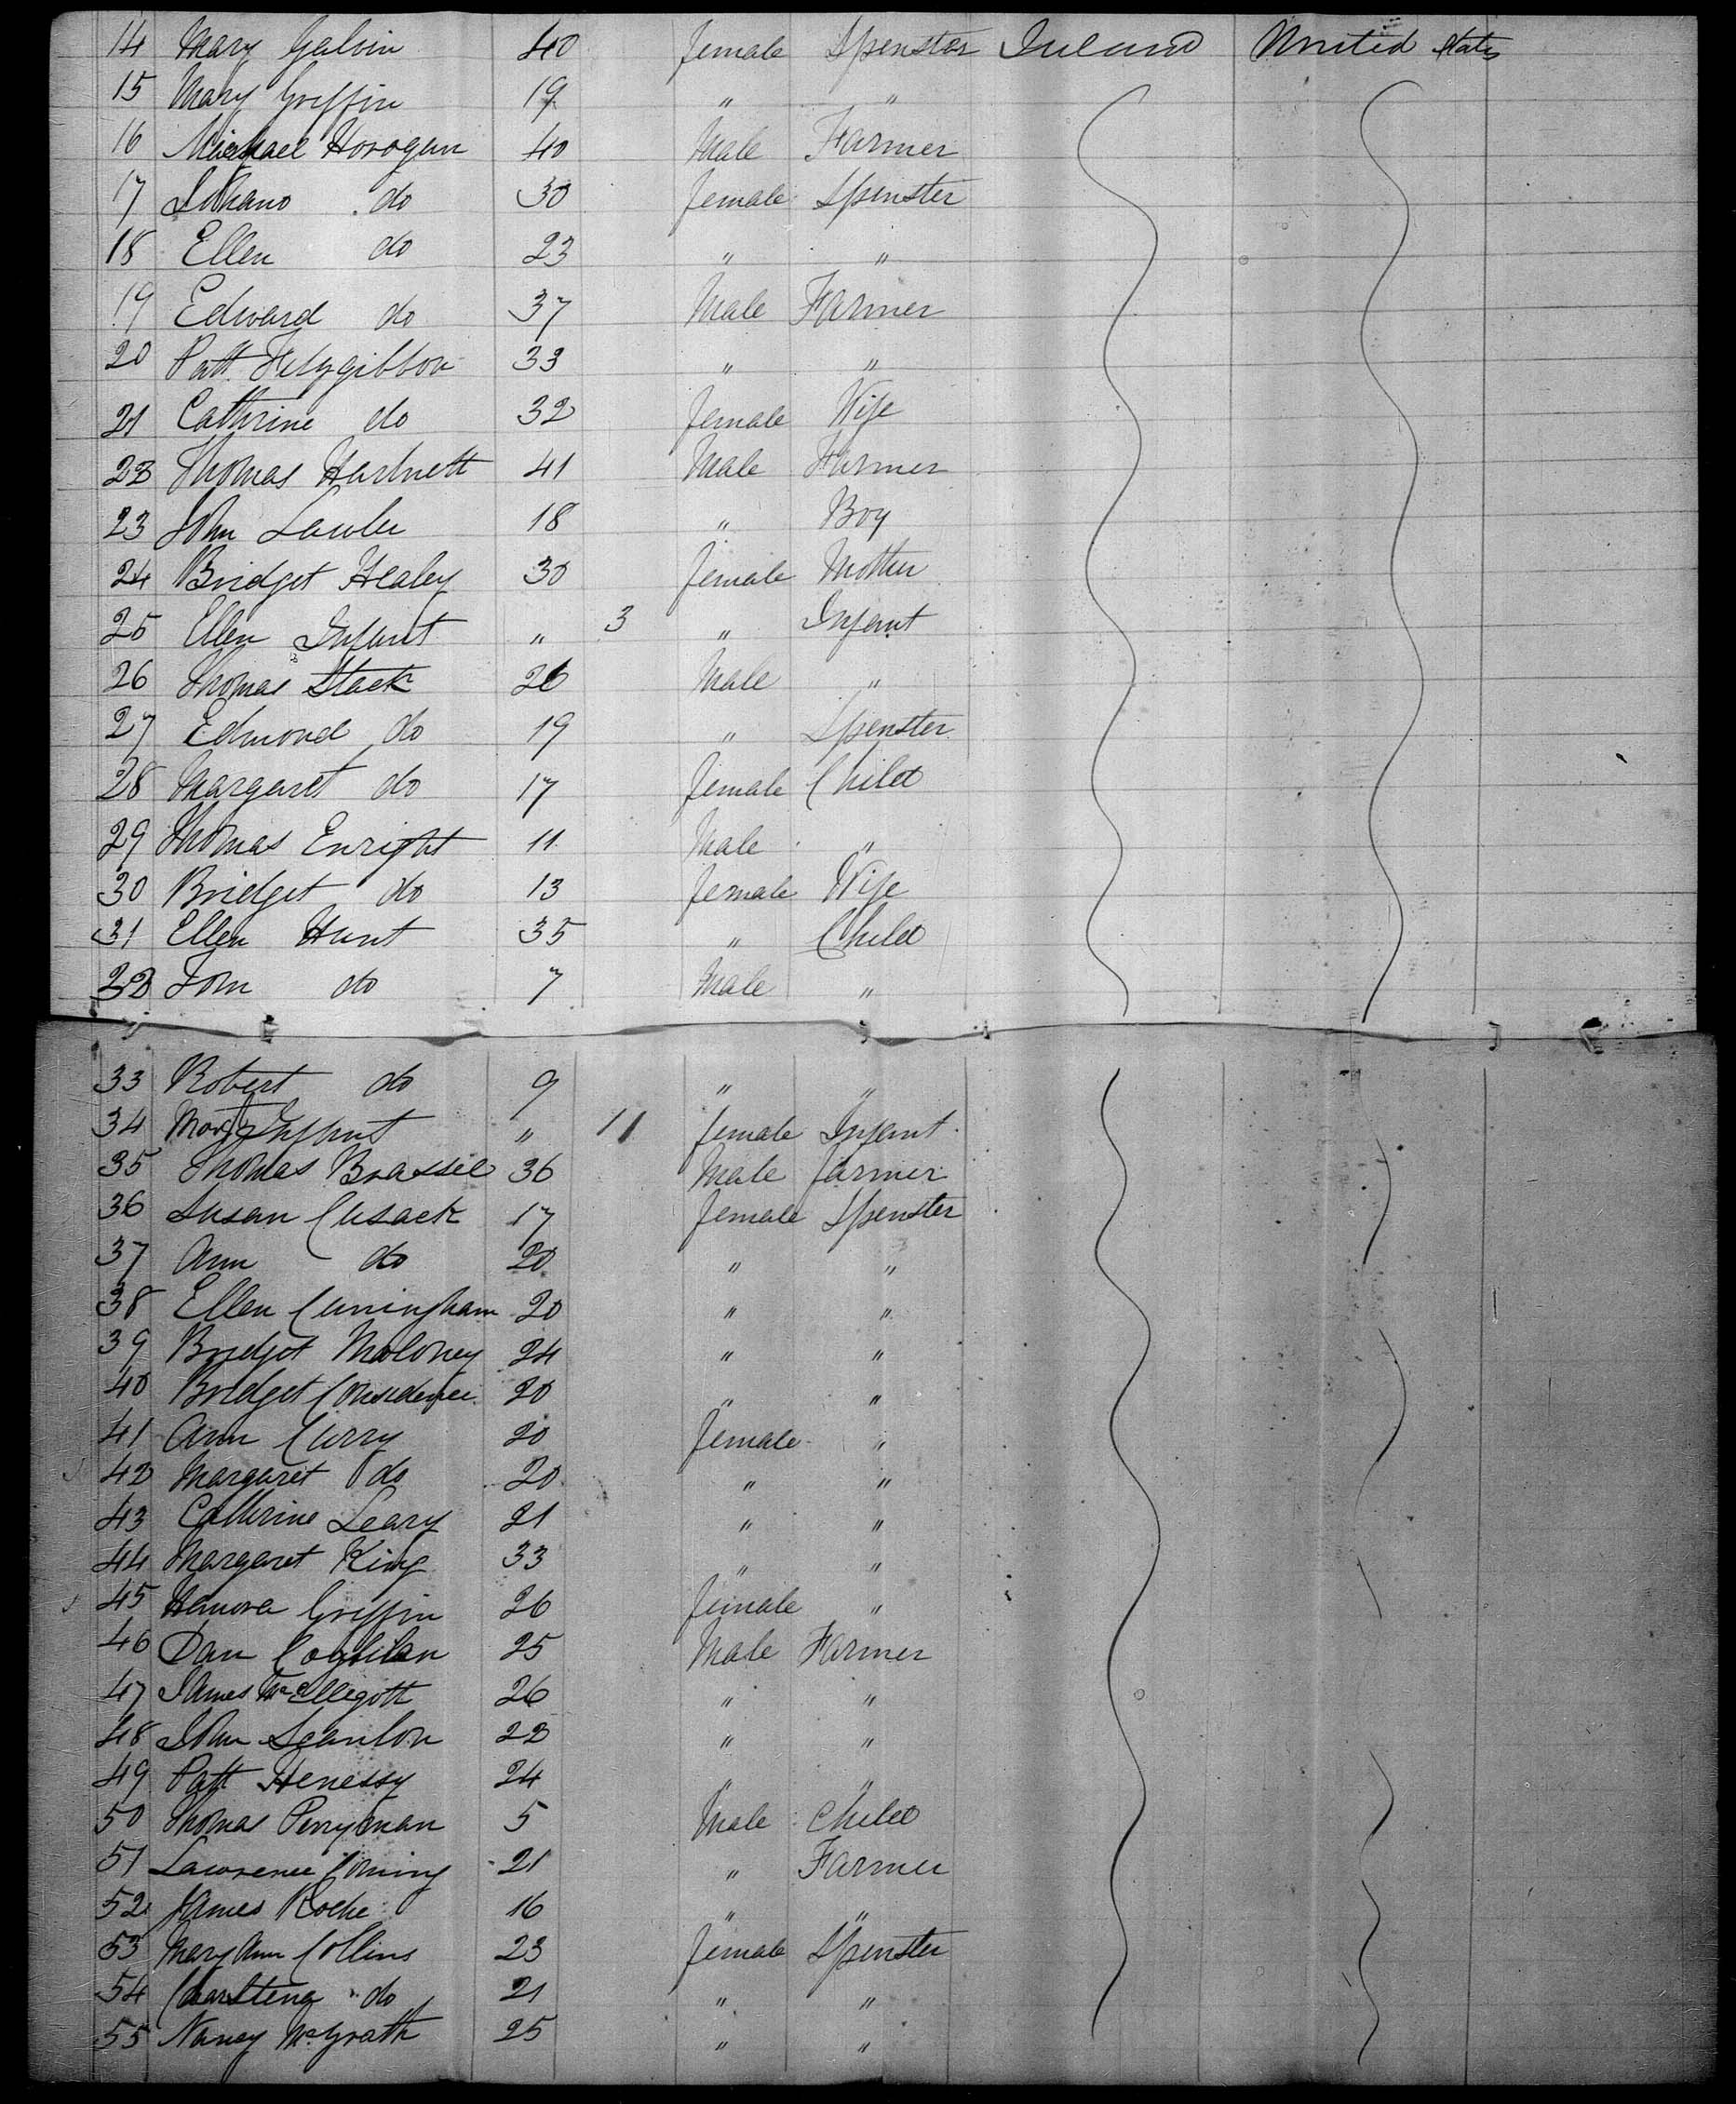 14 Mary Galvin 40 female Spenster Ireland United States
15 Mary Griffin 19 " "
16 Michael Horogan 40 Male Farmer
17 Johano do 30 female Spenster
18 Ellen do 23 " "
19 Edward do 37 Male Farmer
20 Patt Fitzgibbon 33 " "
21 Cathrine do 32 female Wife
22 Thomas Hartnett 41 Male Farmer
23 John Lawler 18 " Boy
24 Bridget Healey 30 female Mother
25 Ellen Infant " 3 " Infant
26 Thomas Stack 26 Male "
27 Edmond do 19 " Spenster
28 Margaret do 17 female Child
29 Thomas Enright 11 Male "
30 Bridget do 13 female Wife
31 Ellen Hunt 35 " Child
32 John do 7 Male "
33 Robert do 9 " "
34 Mary Infant " 11 female Infant
35 Thomas Brassil 36 Male farmer
36 Susan Cusack 17 female Spenster
37 Ann do 20 " "
38 Ellen Cuningham 20 " "
39 Bridget Moloney 24 " "
40 Bridget 20 " "
41 Ann Curry 20 female "
42 Margaret do 20 " "
43 Cathrine Leary 21 " "
44 Margaret King 33 " "
45 Hanora Griffin 26 female "
46 Dan Coghlan 25 Male Farmer
47 James McElligott 26 " "
48 John Scanlon 22 " "
49 Patt Henessy 24 " "
50 Thomas Perryman 5 Male Child
51 Lawrence 21 " Farmer
52 James Roche 16 " "
53 Mary Ann Collins 23 female Spenster
54 do 21 " "
55 Nancy McGrath 25 " "